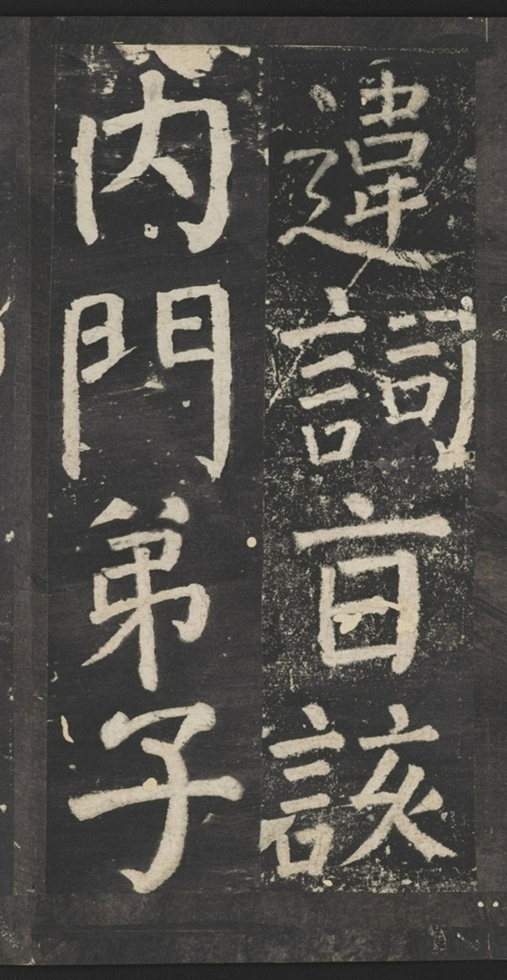 違詞旨該
内門弟子